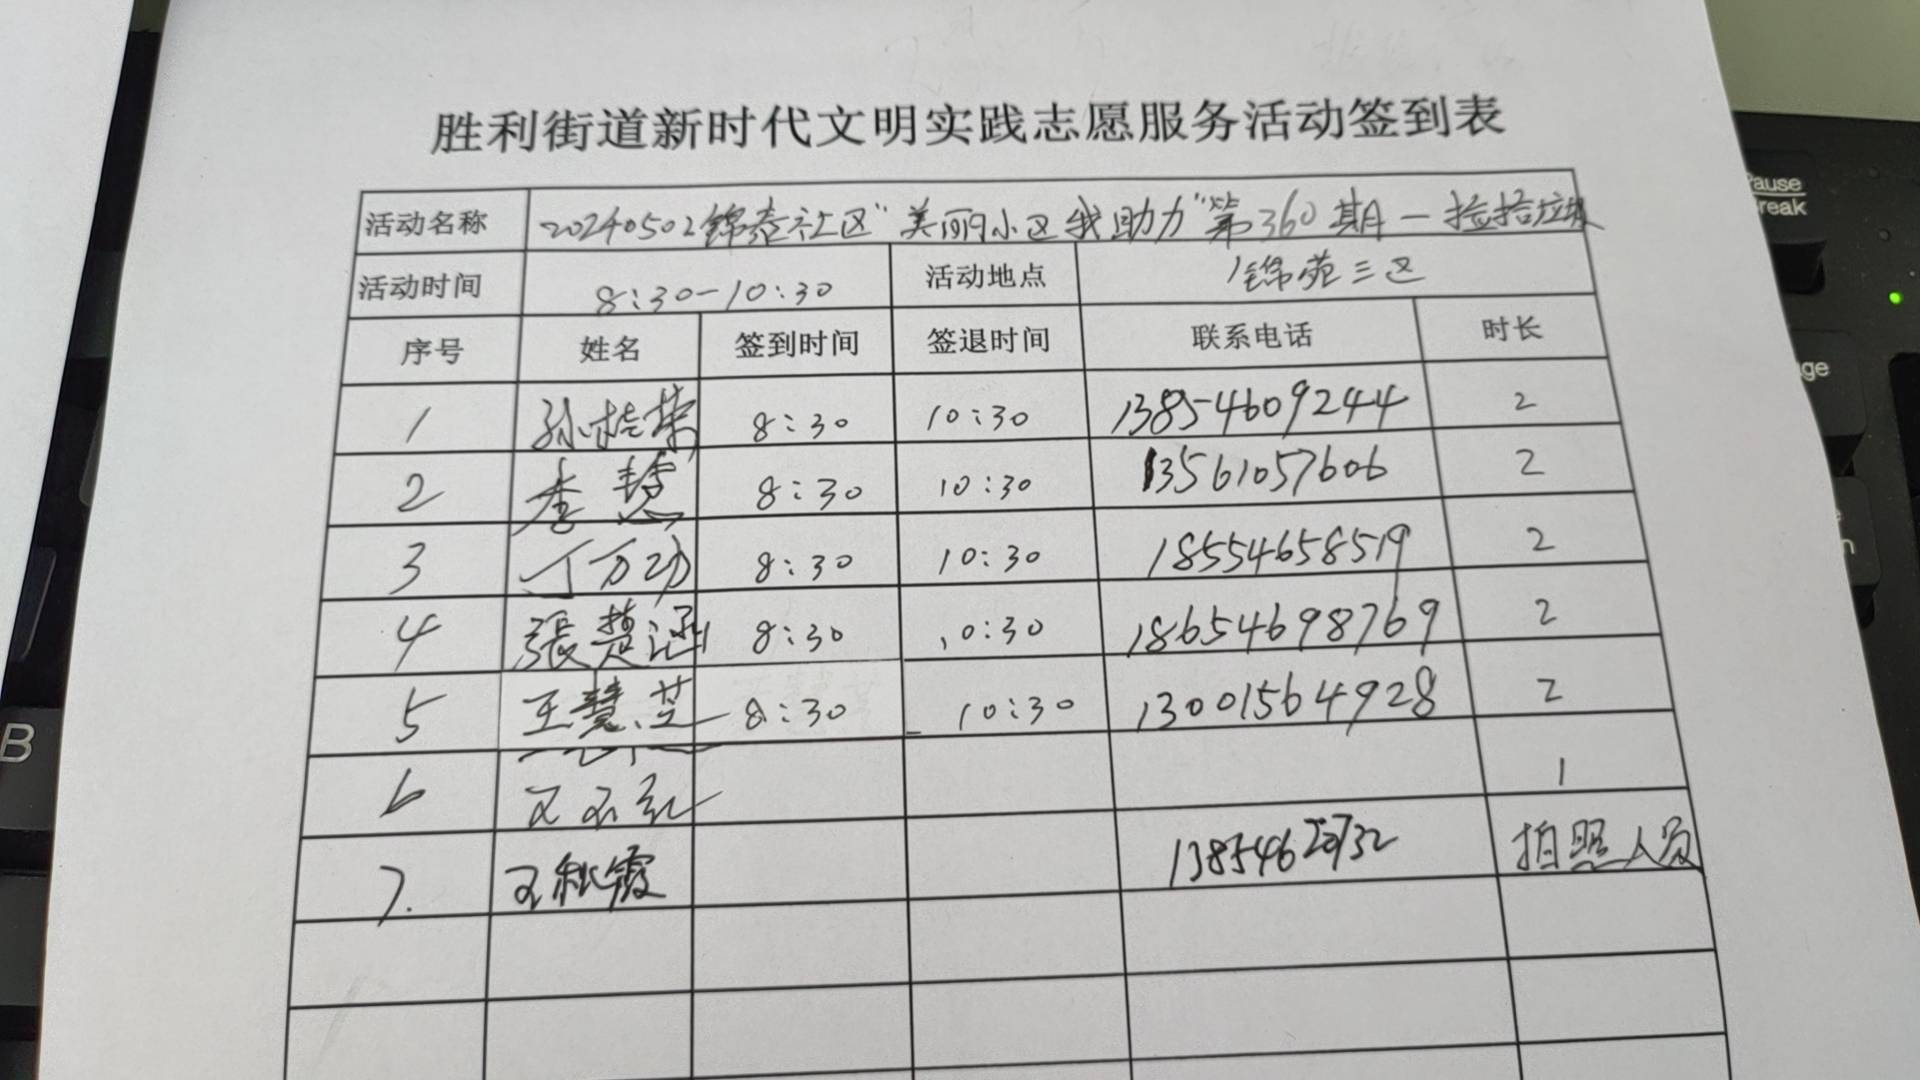 胜利街道新时代文明实践志愿服务活动签到表
活动名称 20240502锦泰社区"美丽小区我助力"第360期—捡拾垃圾
活动时间 8:30-10:30 活动地点 锦苑三区
序号 姓名 签到时间 签退时间 联系电话 时长
1 孙桂荣 8:30 10:30 13854609244 2
2 李慧 8:30 10:30 13561057606 2
3 丁万功 8:30 10:30 18554658519 2
4 張楚涵 8:30 10:30 18654698769 2
5 王慧芝 8:30 10:30 13001564928 2
6 王 1
7. 王秋霞 拍照人员
Pause
Break
B